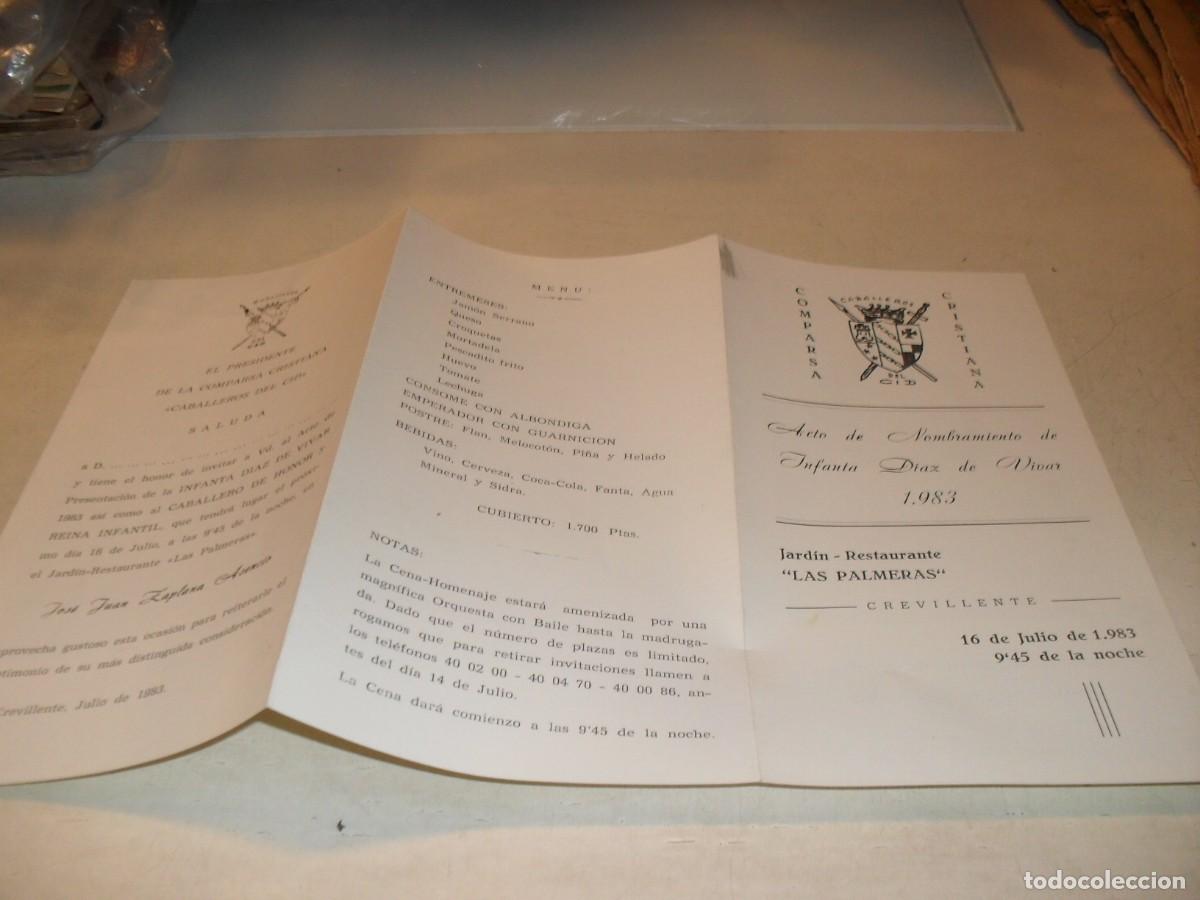 CABALLEROS
DEL
CID
EL PRESIDENTE
DE LA COMPARSA CRISTIANA
«CABALLEROS DEL CID»
SALUDA
a D. ... ... ... ... ... ... ... ... ... ... ...
y tiene el honor de invitar a Vd. al Acto de
Presentación de la INFANTA DIAZ DE VIVAR
1983 así como al CABALLERO DE HONOR y
REINA INFANTIL, que tendrá lugar el próxi-
mo día 16 de Julio, a las 9'45 de la noche, en
el Jardín-Restaurante «Las Palmeras».
José Juan Zaplana Asencio
provecha gustoso esta ocasión para reiterarle el
timonio de su más distinguida consideración.
revillente, Julio de 1983.
MENU:
ENTREMESES:
Jamón Serrano
Queso
Croquetas
Mortadela
Pescadito frito
Huevo
Tomate
Lechuga
CONSOME CON ALBONDIGA
EMPERADOR CON GUARNICION
POSTRE: Flan, Melocotón, Piña y Helado
BEBIDAS:
Vino, Cerveza, Coca-Cola, Fanta, Agua
Mineral y Sidra.
CUBIERTO: 1.700 Ptas.
NOTAS:
La Cena-Homenaje estará amenizada por una
magnífica Orquesta con Baile hasta la madruga-
da. Dado que el número de plazas es limitado,
rogamos que para retirar invitaciones llamen a
los teléfonos 40 02 00 - 40 04 70 - 40 00 86, an-
tes del día 14 de Julio.
La Cena dará comienzo a las 9'45 de la noche.
COMPARSA
CABALLEROS
DEL
CID
CRISTIANA
Acto de Nombramiento de
Infanta Diaz de Vivar
1.983
Jardín - Restaurante
"LAS PALMERAS"
CREVILLENTE
16 de Julio de 1.983
9'45 de la noche
todocoleccion